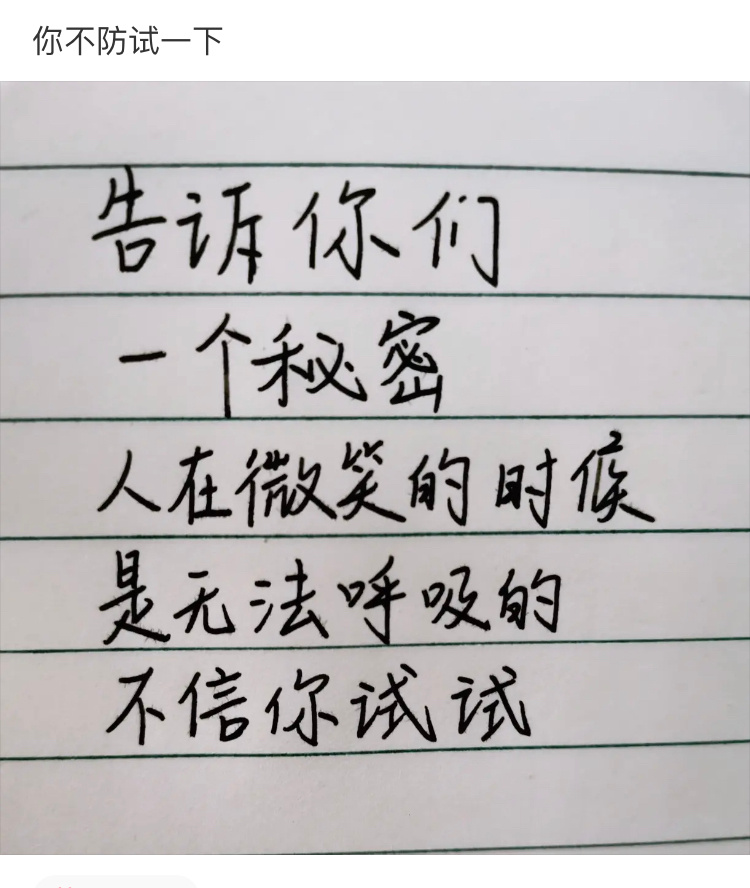 你不防试一下
告诉你们
一个秘密
人在微笑的时候
是无法呼吸的
不信你试试